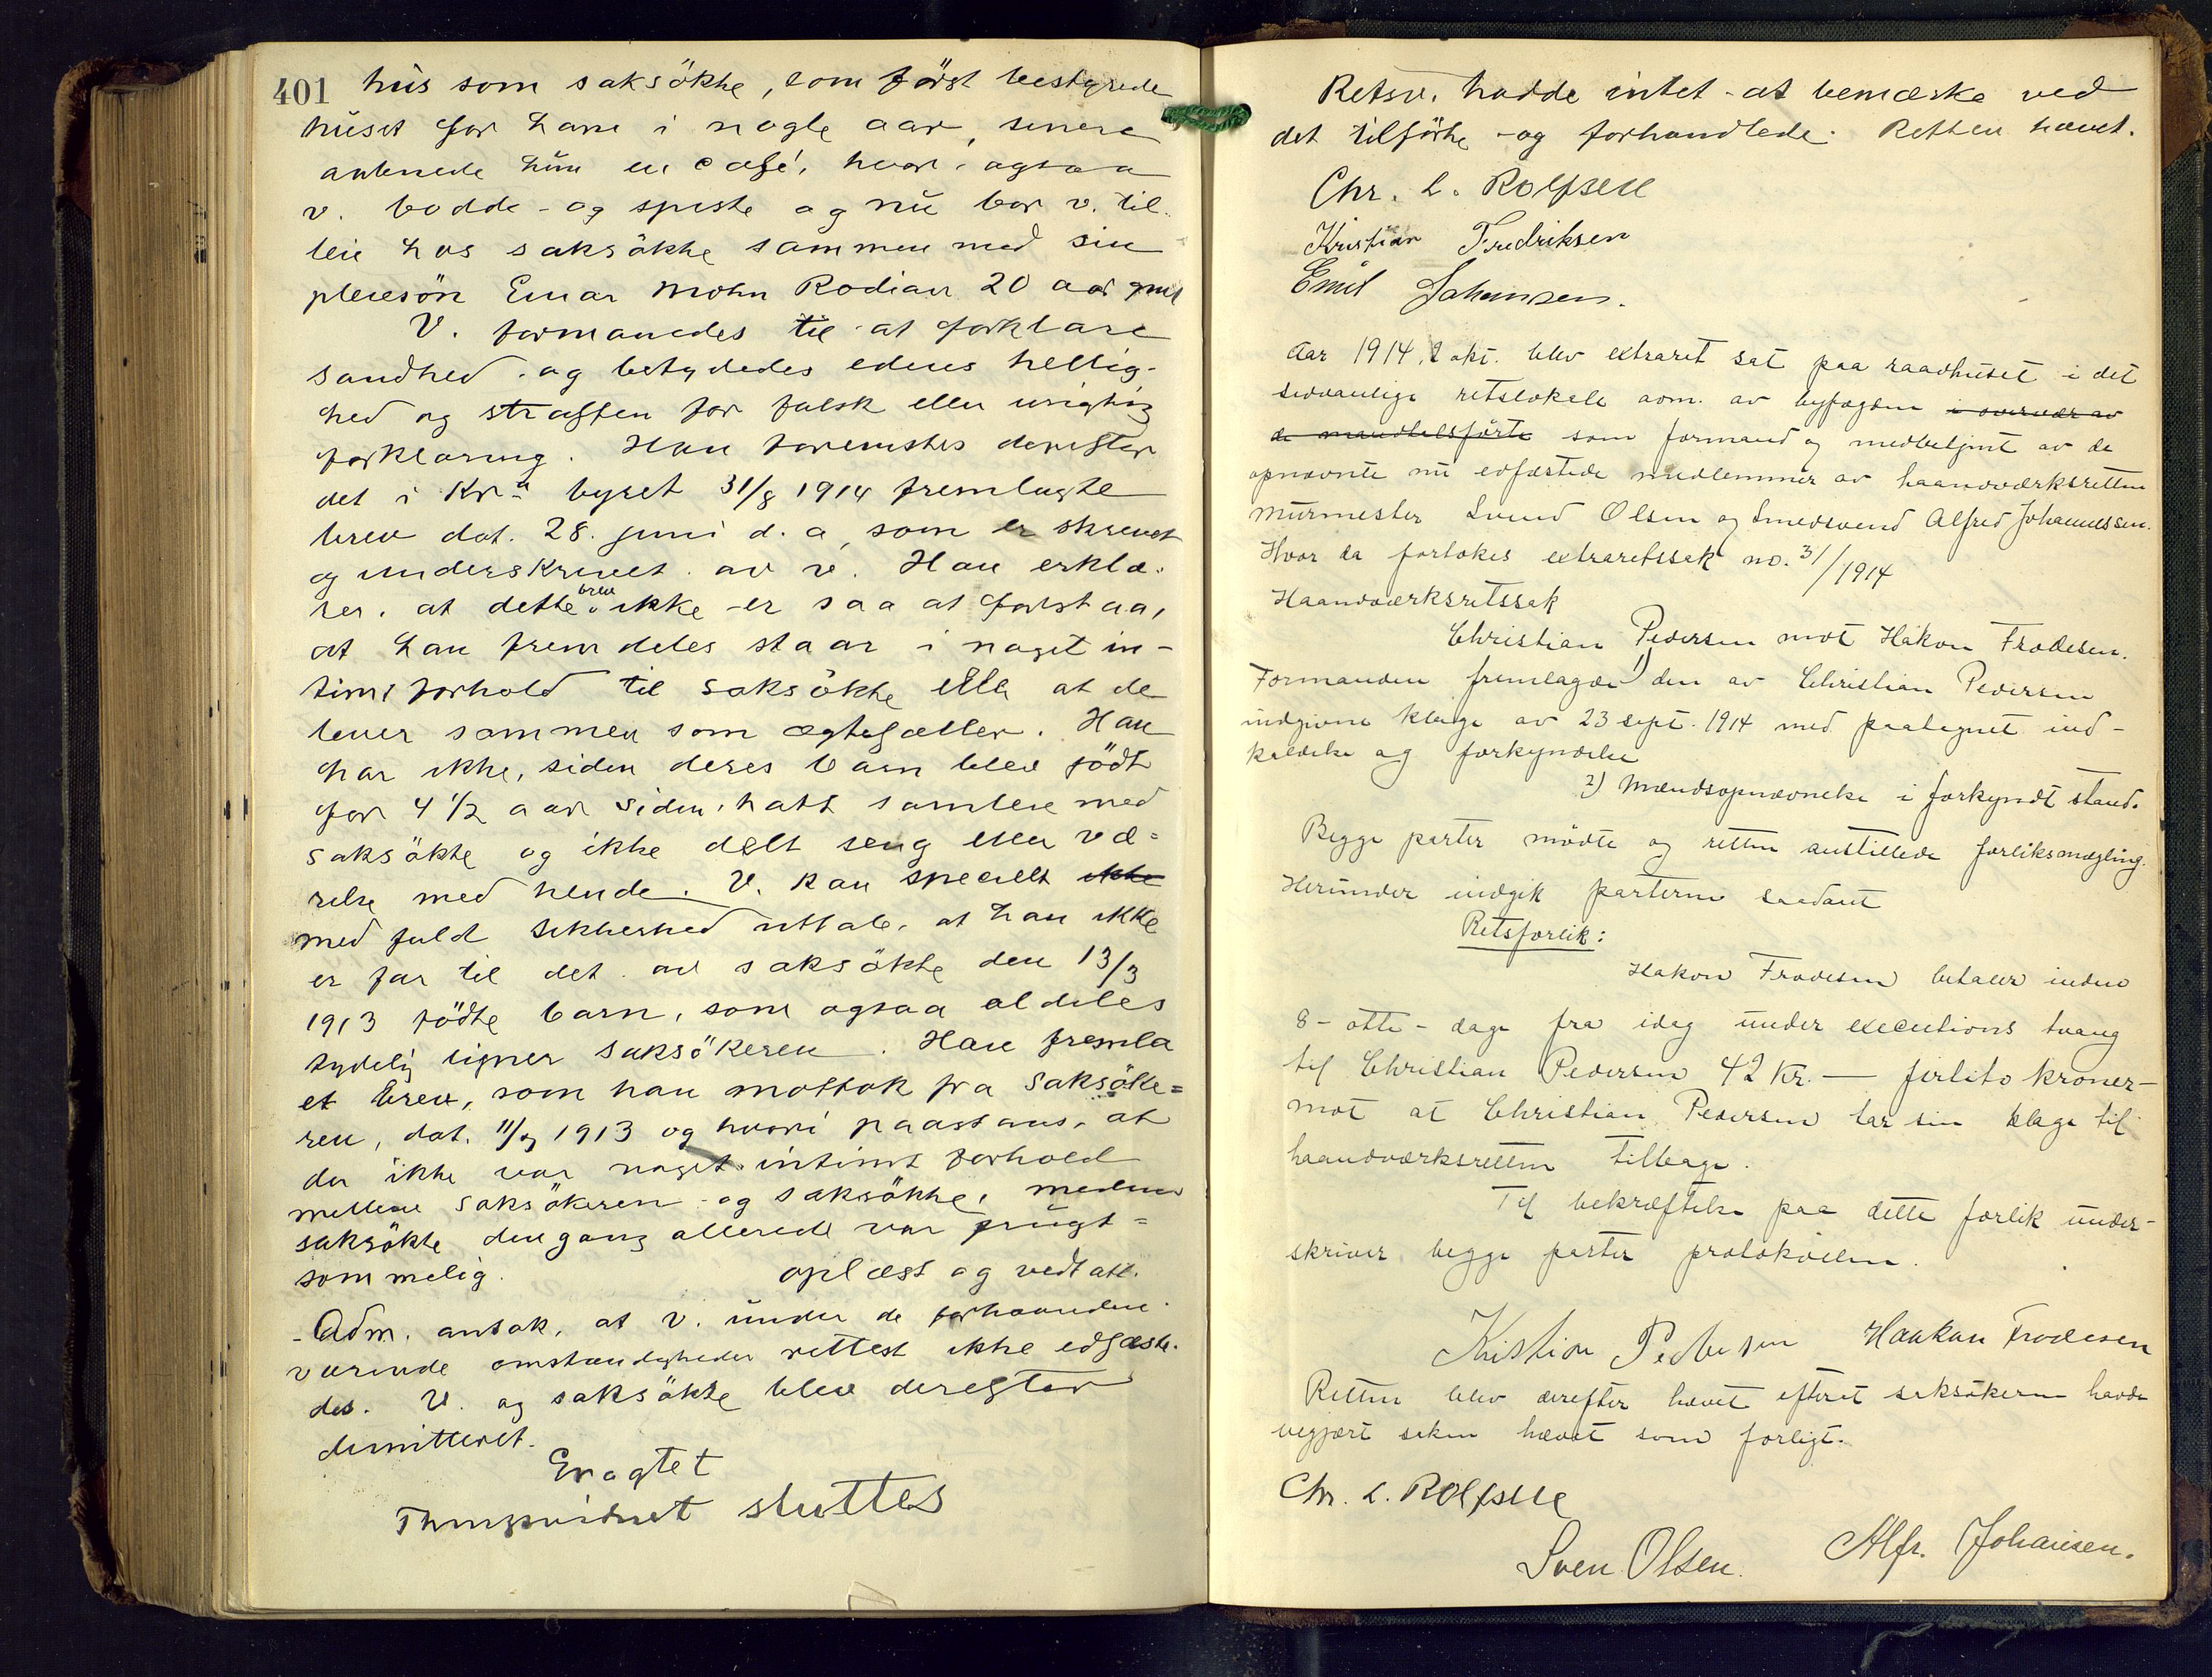 401
hus som saksökte, som först bestyrede
huset for ham i nogle aar, senere
aabnede hun en café, hvor i ogsaa
v. bodde og spiste og nu bor v. til
leie hos saksökte sammen med sin
pleiesön Einar Mohn Rodian 20 aar gml
V. formanedes til at forklare
sandhed og betydedes edens hellig-
hed og straffen for falsk eller urigtig
forklaring. Han foreviistes derefter
det i Kr.a byret 31/8 1914 fremlagte
brev dat. 28. juni d. a, som er skrevet
og underskrevet av v. Han erklæ-
rer, at dette brev ikke er saa at forstaa,
at han fremdeles staar i noget in-
timt forhold til saksökte eller at de
lever sammen som ægtefæller. Han
har ikke, siden deres barn blev födt
for 4 1/2 aar siden, hatt samleie med
saksökte og ikke delt seng eller væ-
relse med hende. V. kan specielt ikke
med fuld sikkerhed uttale, at han ikke
er far til det av saksökte den 13/3
1913 födte barn, som ogsaa aldeles
tydelig ligner saksökeren. Han fremla
et brev, som han mottok fra saksöke-
ren, dat. 11/9 1913 og hvori paastaaes, at
der ikke var noget intimt forhold
mellem saksökeren og saksökte, medens
saksökte dengang allerede var frugt-
sommelig. oplæst og vedtatt.
Adm. antok, at v. under de forhaanden-
værende omstændigheder rettest ikke edfæste-
des. V. og saksökte blev derefter
dimitteret.
Eragtet
Thingsvidnet sluttes
Retsv. hadde intet at bemærke ved
det tilförte og forhandlede. Retten hævet.
Chr. L. Rolfsen
Kristian Fredriksen
Emil Johansen.
Aar 1914, 2 okt. blev extraret sat paa raadhuset i det
sedvanlige retslokale adm. av byfogden i overvær av
de mandtalsförte som formand og medbetjent av de
opnævnte nu edfæstede medlemmer av haandværksretten
murmester Svend Olsen og Smedsvend Alfred Johannessen.
Hvor da foretokes extraretssak no. 31/1914
Haandværksretssak
Christian Pedersen mot Håkon Frodesen.
Formanden fremlagde 1) den av Christian Pedersen
indgivne klage av 23 sept. 1914 med paategnet ind-
kaldelse og forkyndelse
2) Mændsopnævnelse i forkyndt stand.
Begge parter mödte og retten anstillede forliksmægling.
Herunder indgik parterne saadant
Retsforlik:
Hakon Frodesen betaler inden
8 - otte - dage fra idag under executions tvang
til Christian Pedersen 42 Kr. — firtito kroner -
mot at Christian Pedersen tar sin klage til
haandværksretten tilbage.
Til bekræftelse paa dette forlik under-
skriver begge parter protokollen.
Kristian Pedersen Haakon Frodesen
Retten blev derefter hævet efterat saksökeren havde
begjært saken hævet som forligt.
Chr. L. Rolfsen
Sven Olsen. Alfr. Johansen.